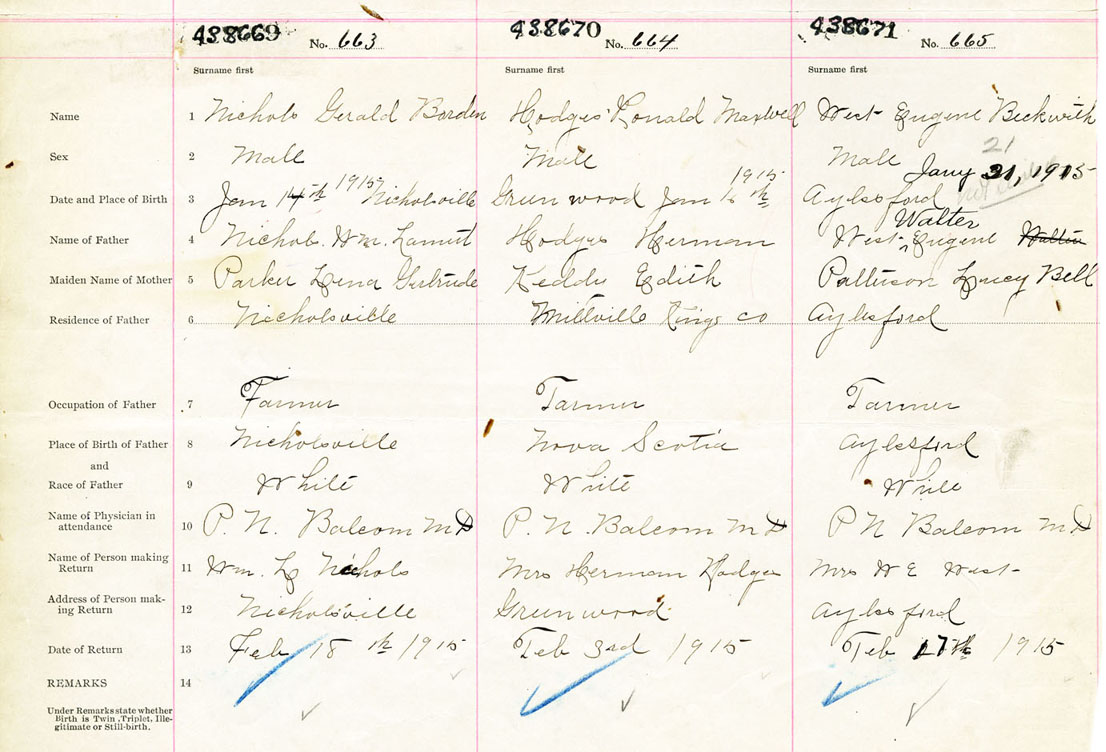 438669 No. 663 438670 No. 664 438671 No. 665
Surname first Surname first Surname first
Name 1 Nichols Gerald Borden Hodges Ronald Maxwell West Eugene Beckwith
Sex 2 Male Male Male
21
Jany 21, 1915
1915 1915
Date and Place of Birth 3 Jan 14th Nicholsville Greenwood Jan th Aylesford
Walter
Name of Father 4 Nichols. Wm. Hodges Herman West Eugene Walter
Maiden Name of Mother 5 Parker Lena Gertrude Keddy Edith Pattison Lucy Bell
Residence of Father 6 Nicholsville Millville Kings Co Aylesford
Occupation of Father 7 Farmer Farmer Farmer
Place of Birth of Father 8 Nicholsville Nova Scotia Aylesford
and
Race of Father 9 White White White
Name of Physician in
attendance 10 P. N. Balcom M D P. N. Balcom M D P N Balcom M D
Name of Person making
Return 11 Wm. L Nichols Mrs Herman Hodges Mrs W E West
Address of Person mak-
ing Return 12 Nicholsville Greenwood Aylesford
Date of Return 13 Feb 18 th 1915 Feb 3rd 1915 Feb 17th 1915
REMARKS 14
Under Remarks state whether
Birth is Twin, Triplet, Ille-
gitimate or Still-birth.